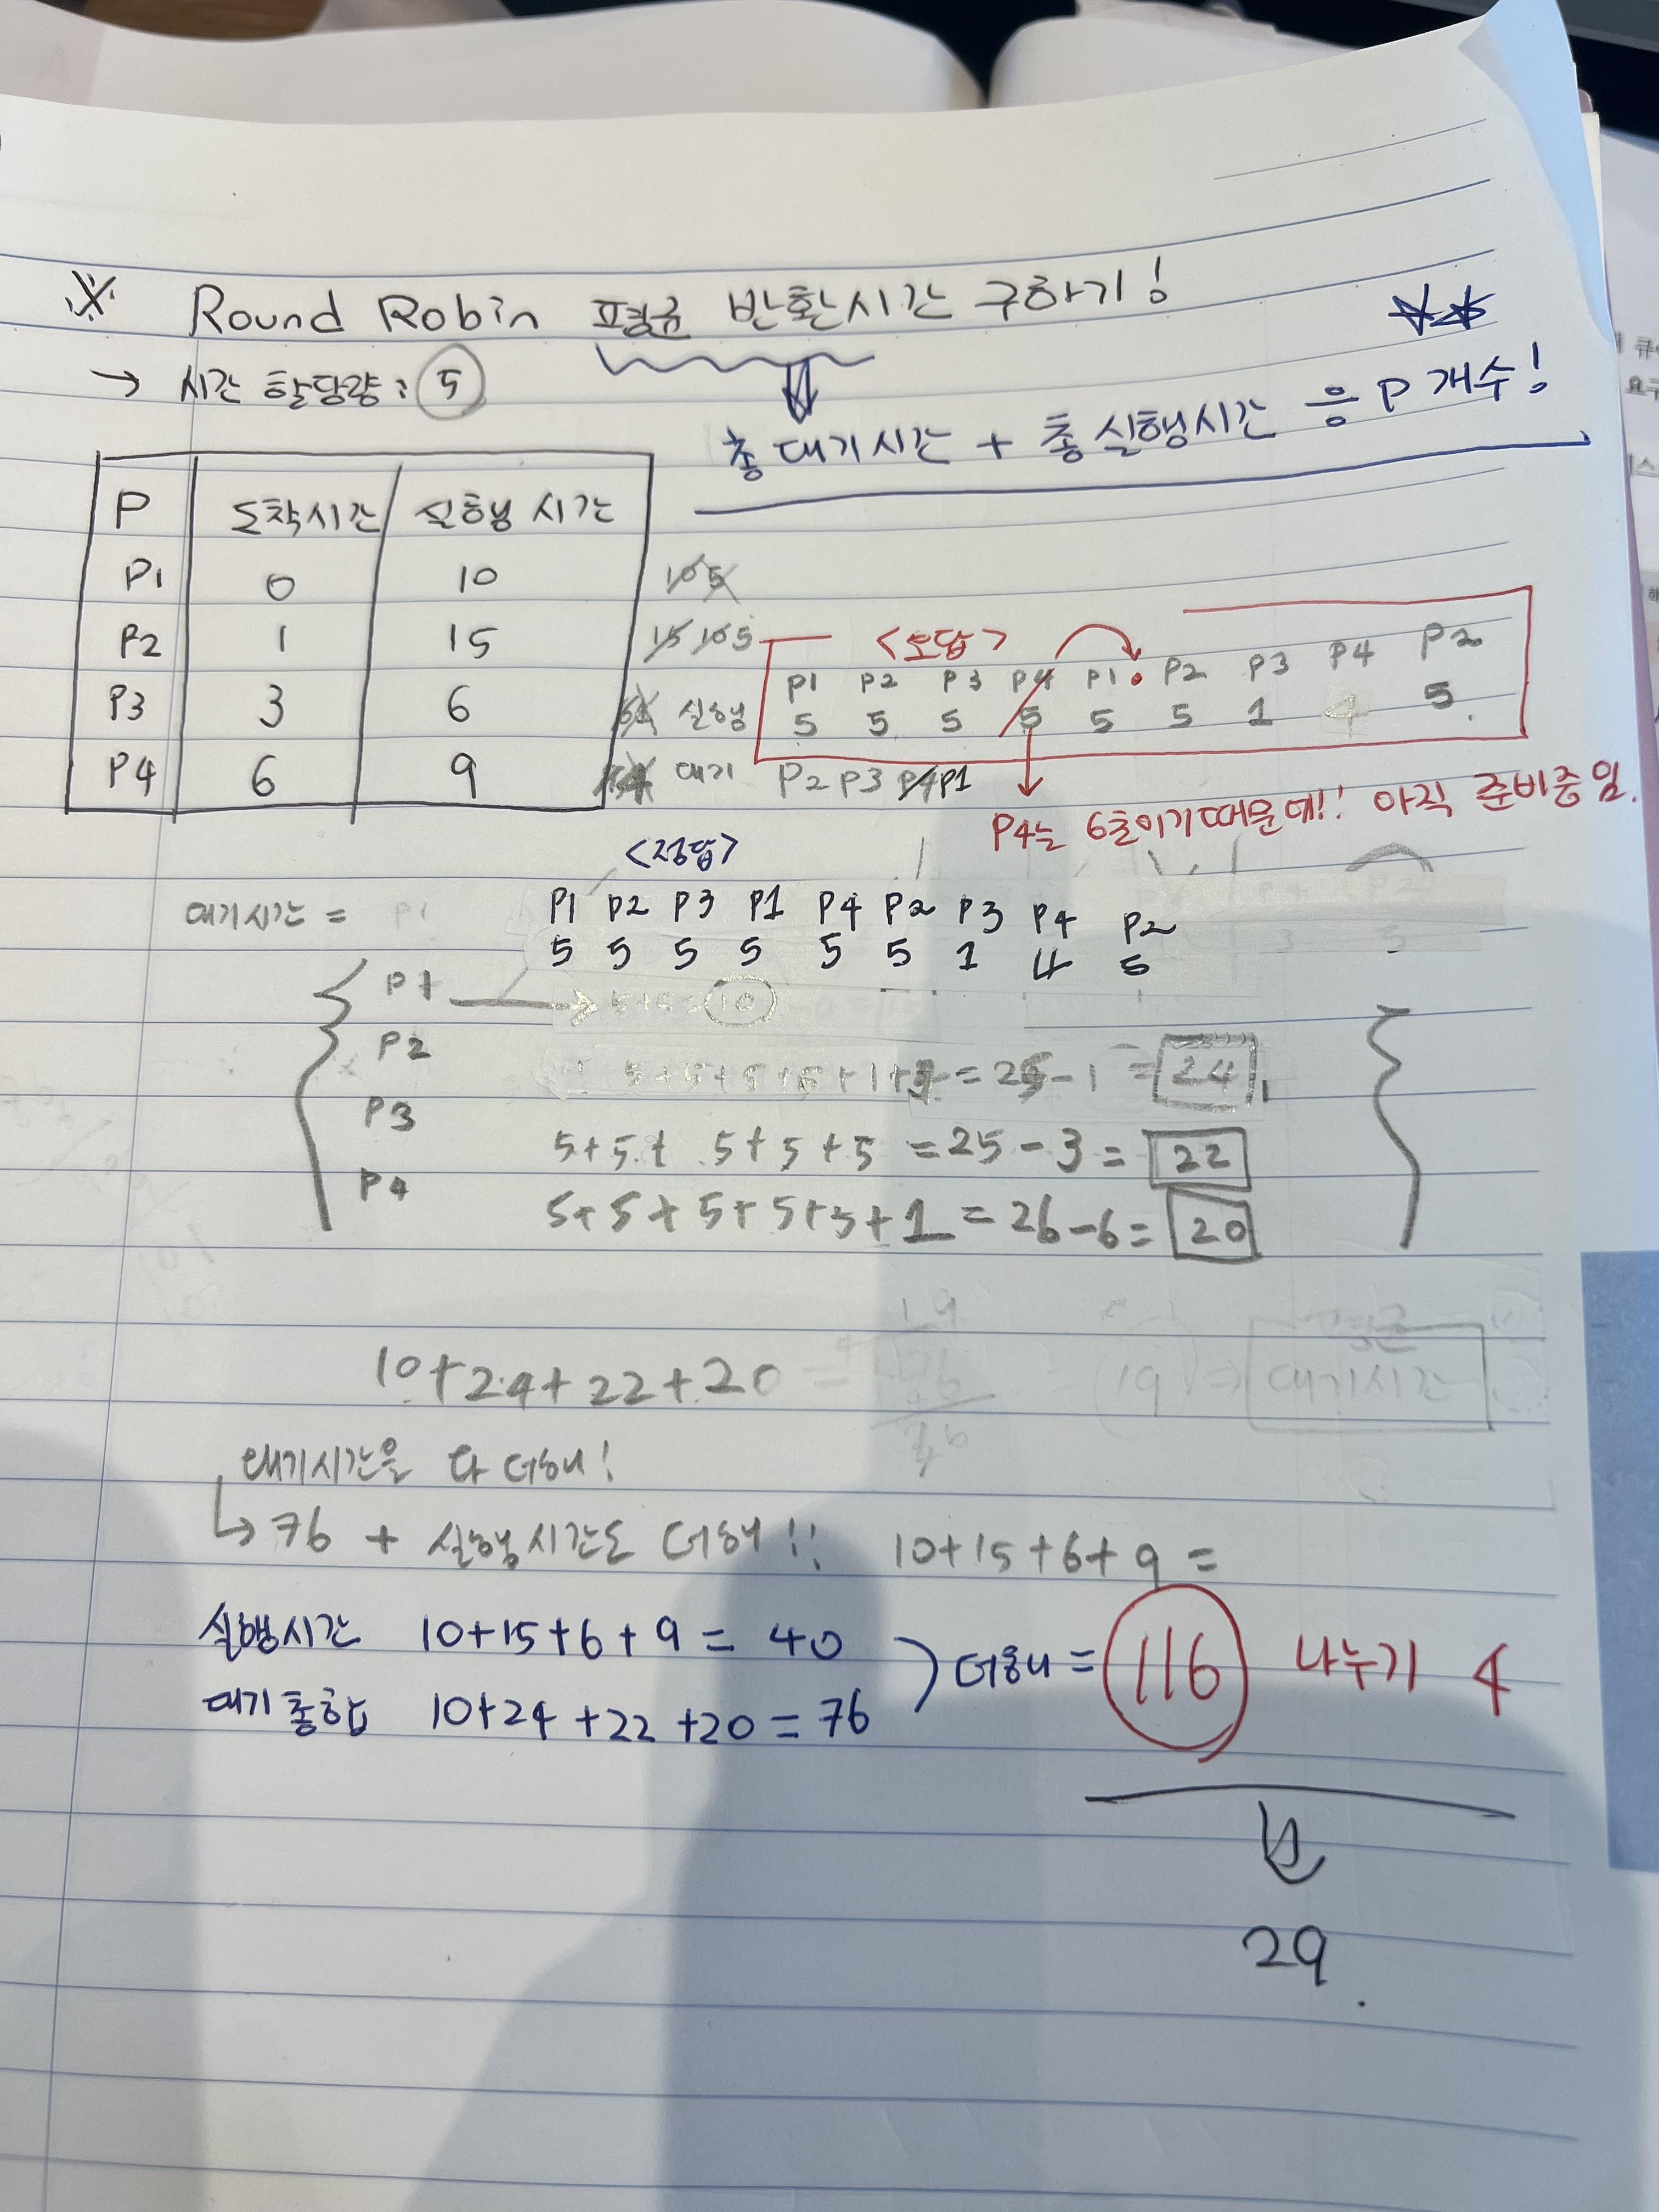 ※ Round Robin 평균 반환시간 구하기!
→ 시간 할당량 : 5
총 대기시간 + 총 실행시간 ÷ P 개수!
P 도착시간 실행 시간
P1 0 10 10 5
P2 1 15 15 10 5
P3 3 6 6 1
P4 6 9
<오답>
P1 P2 P3 P4 P1 P2 P3 P4 P2
실행 5 5 5 5 5 5 1 4 5
대기 P2 P3 P4 P1
P4는 6초이기때문에!! 아직 준비중임.
<정답>
대기시간 =
P1 P2 P3 P1 P4 P2 P3 P4 P2
5 5 5 5 5 5 1 4 5
P1 → 5+5=10
P2 = 25-1 = 24
P3 5+5+ 5+5+5 = 25-3 = 22
P4 5+5+5+5+5+1 = 26-6= 20
10+24+22+20 = 19 ⇒ 대기시간
대기시간을 다 더해!
↳ 76 + 실행시간도 더해!! 10+15+6+9 =
실행시간 10+15+6+9 = 40
대기 총합 10+24+22+20=76
더하니 = 116 나누기 4
29